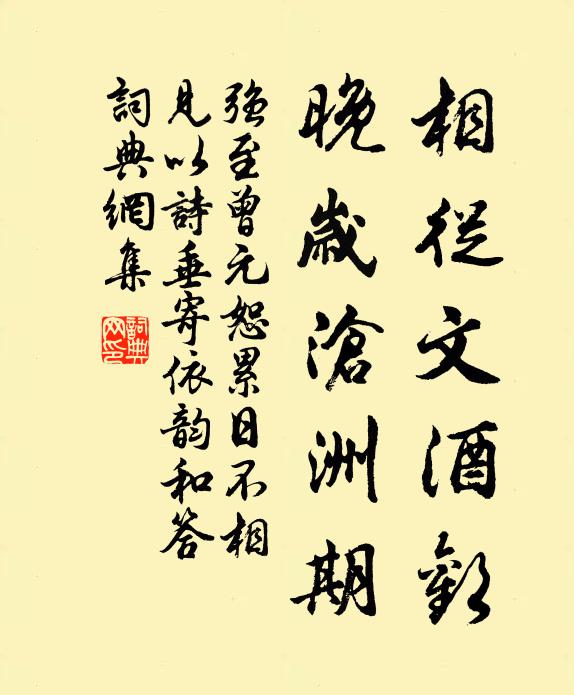 相從文酒歡
晚歲滄洲期
強至曾元恕累日不相
見以詩垂寄依韵和答
詞典網集
詞典网印